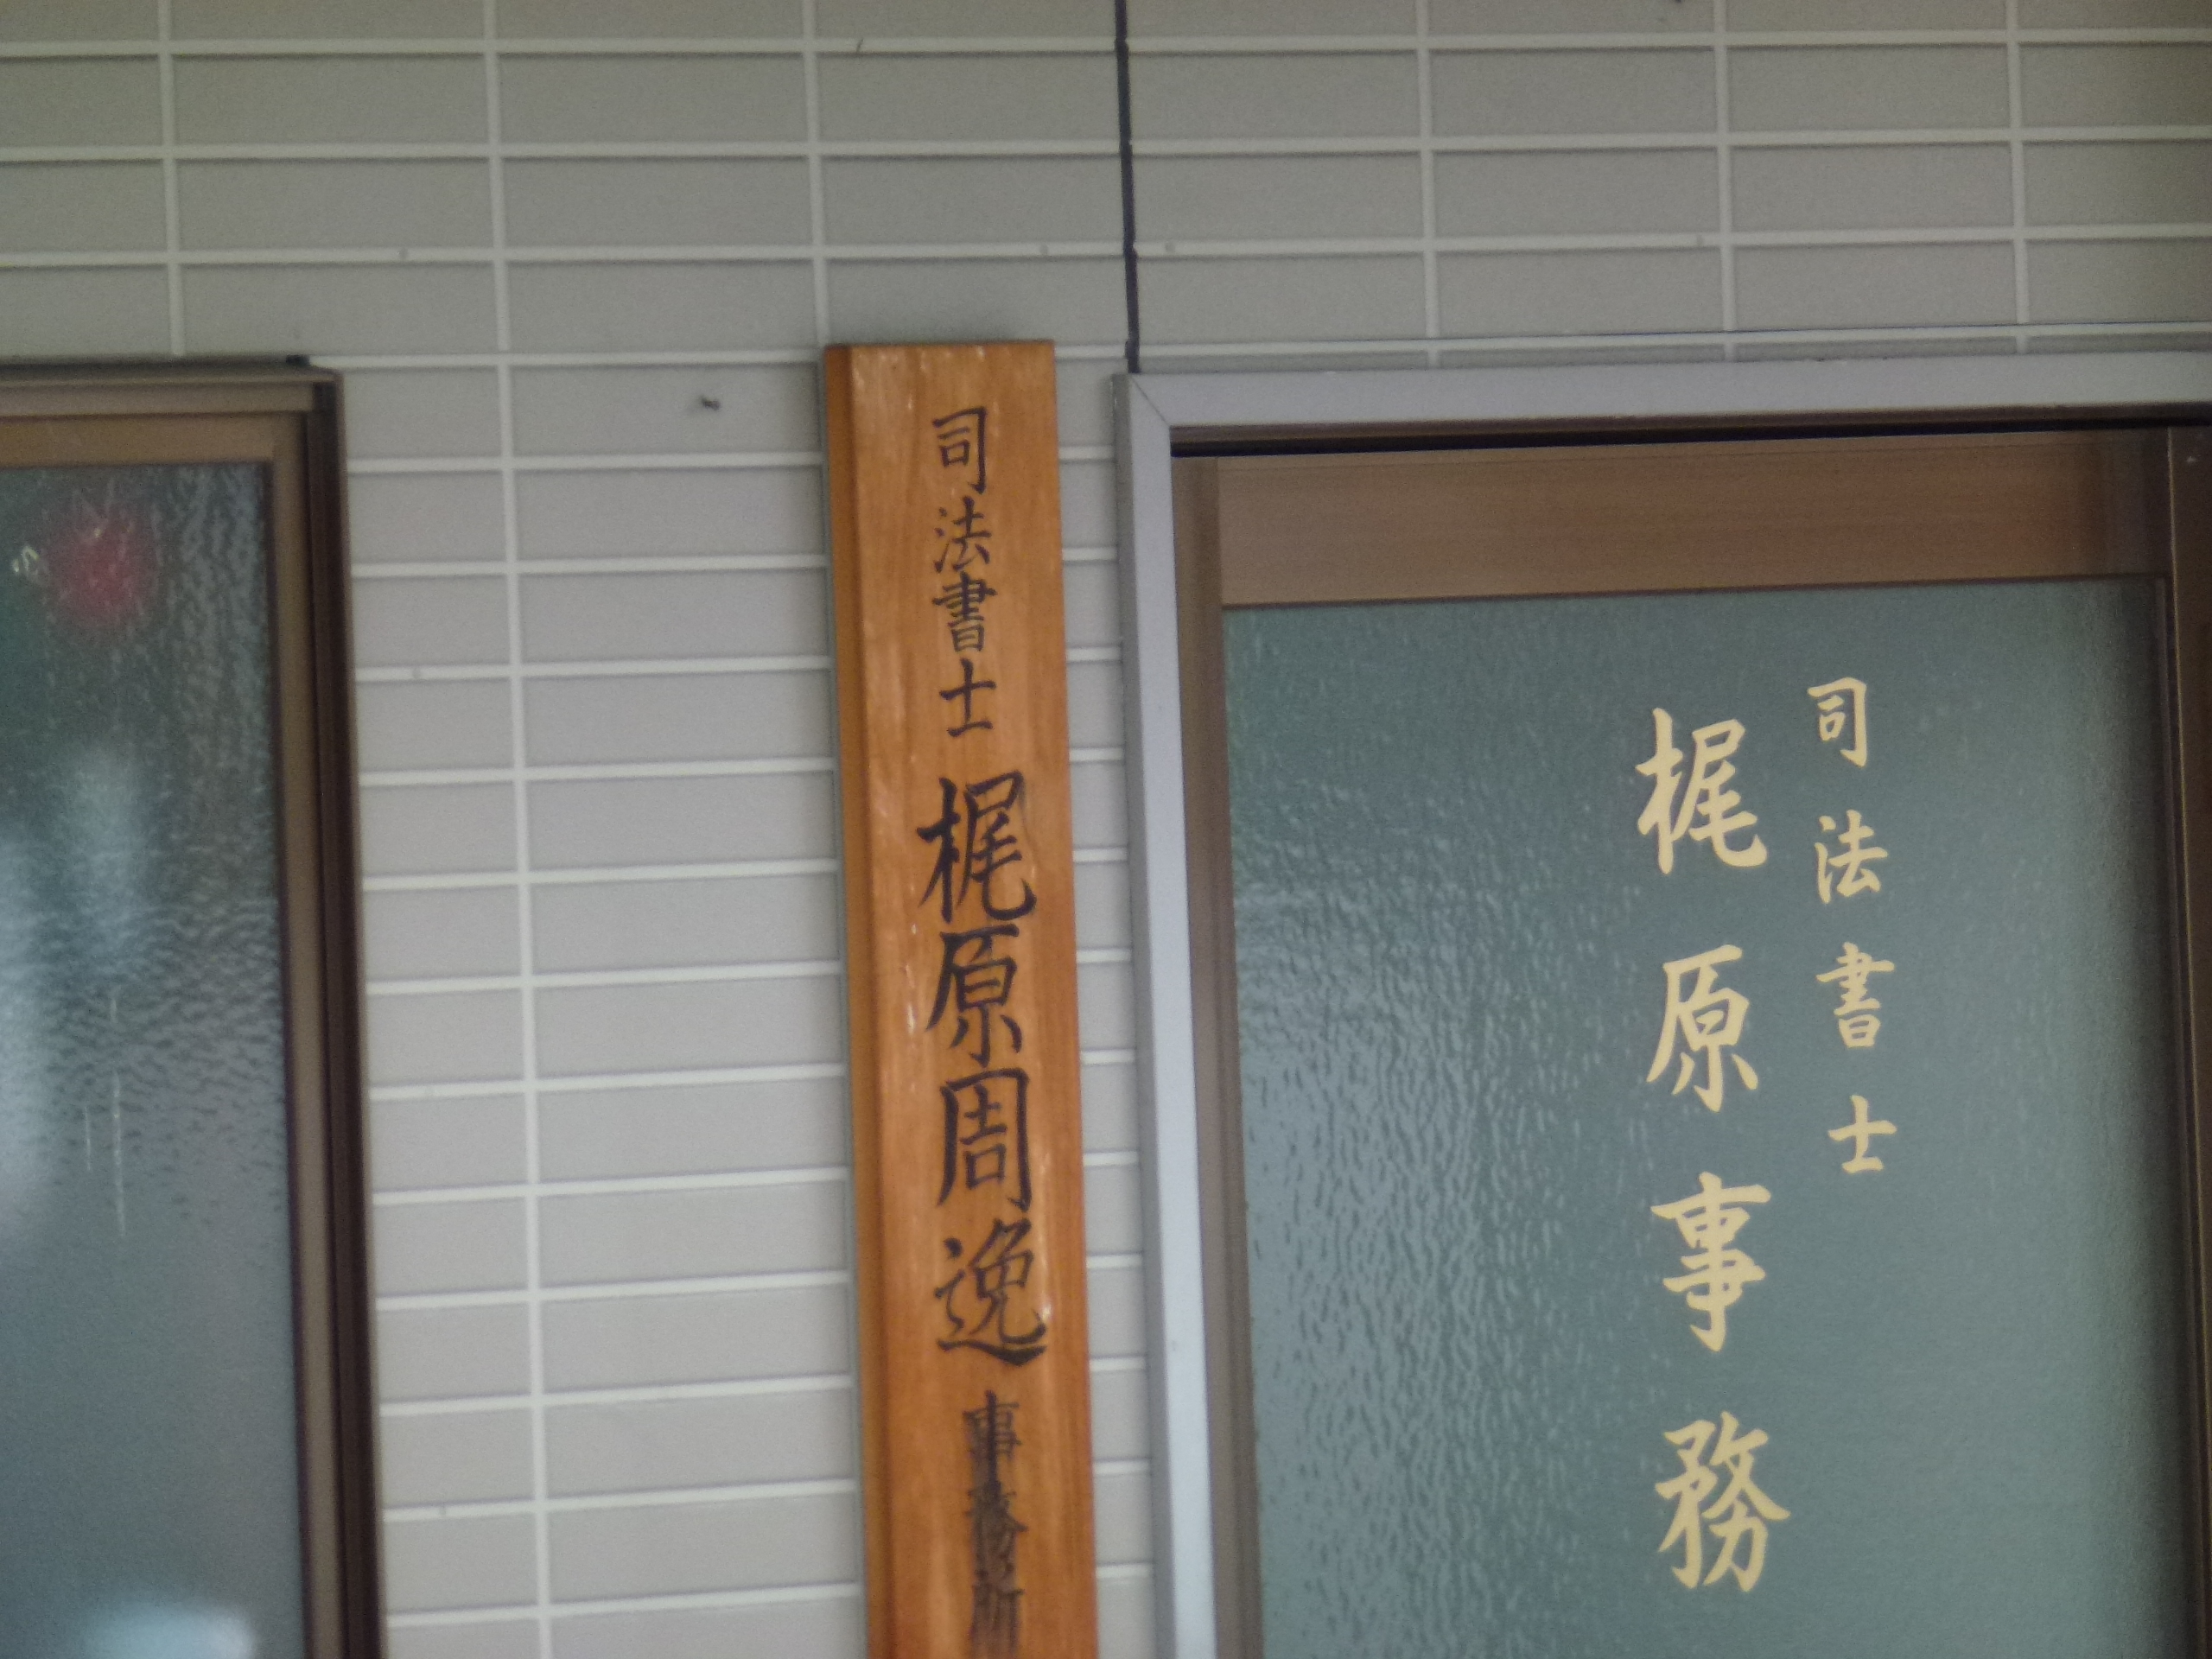 司法書士 梶原周逸 事務所
司法書士
梶原事務